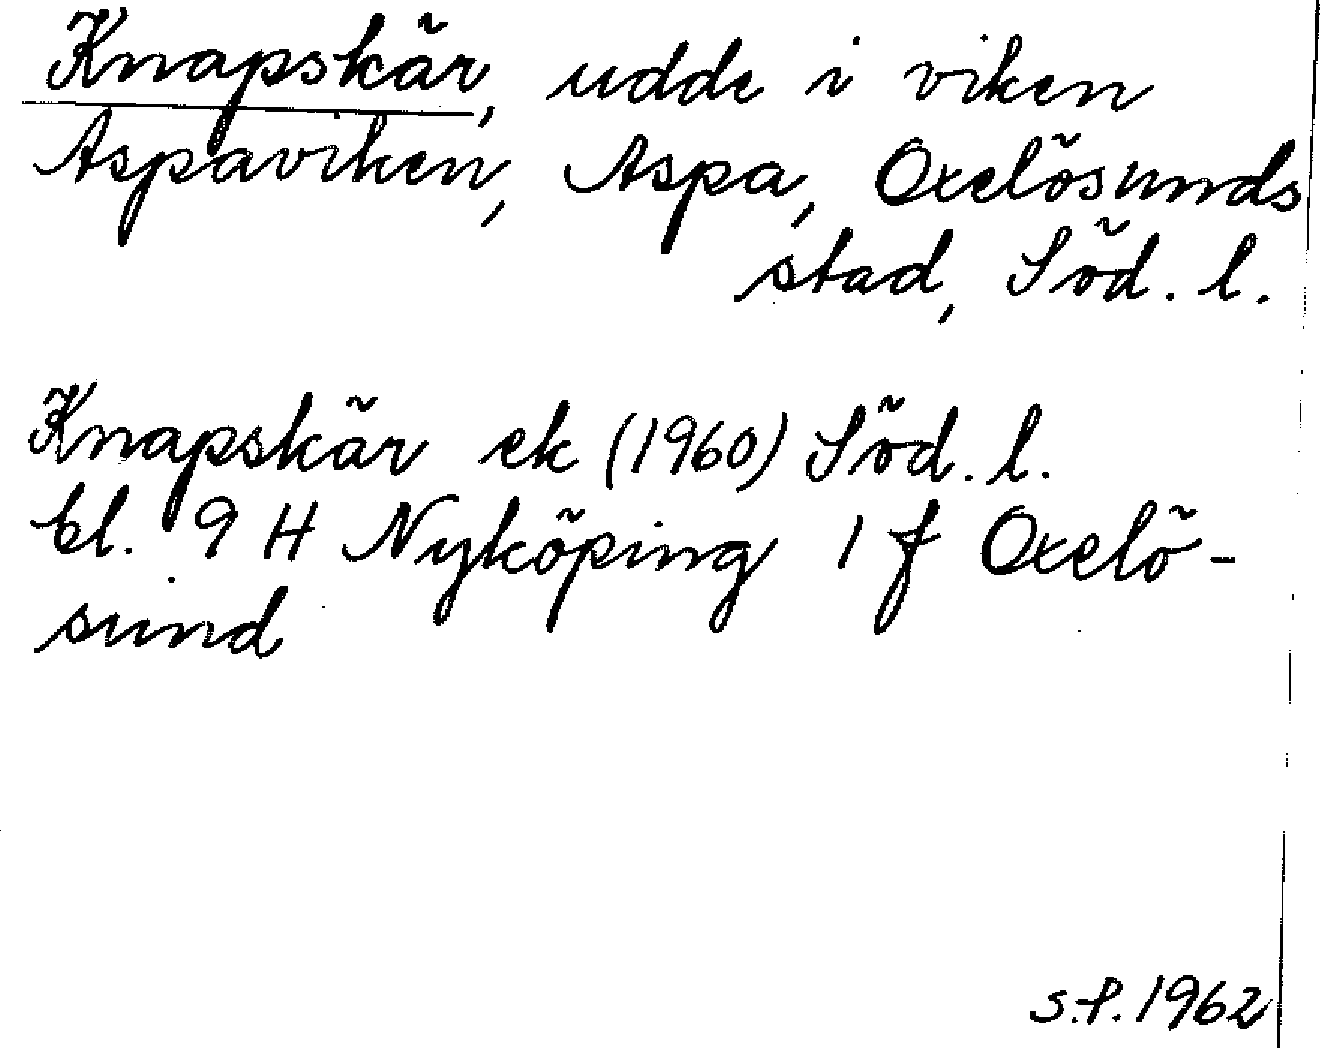 Knapskär, udde i viken
Aspaviken, Aspa, Oxelösunds
stad, Söd. l.
Knapskär ek (1960) Söd. l.
bl. 9 H Nyköping 1 f Oxelö-
sund
S.P. 1962